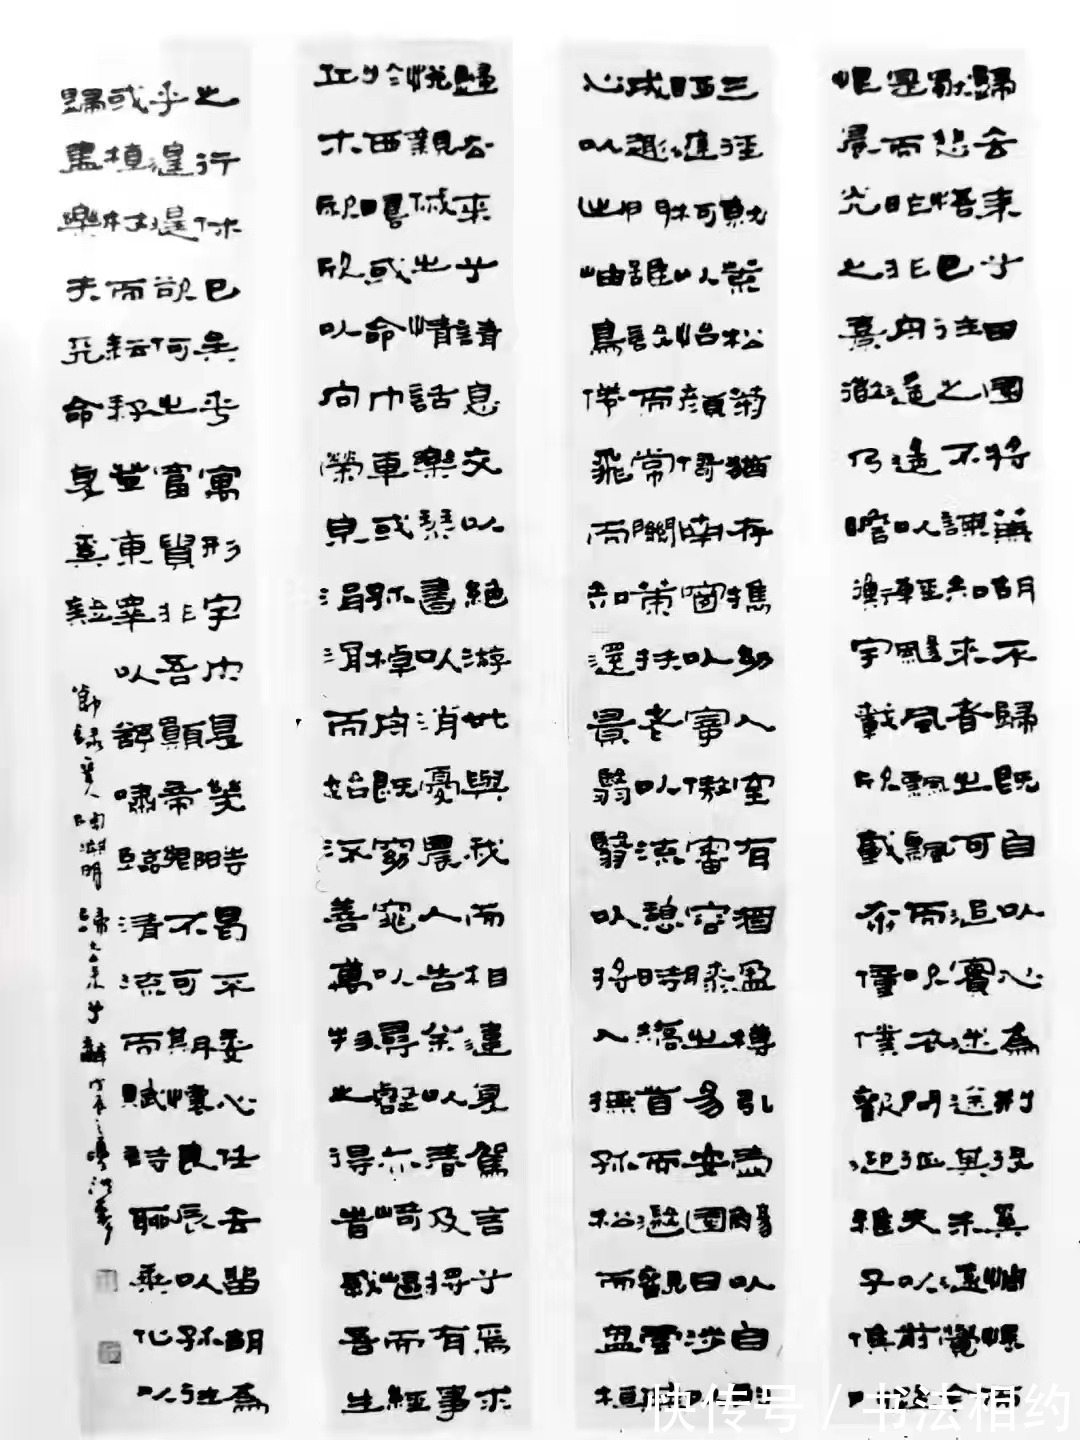 歸去来兮田園将蕪胡不歸既自以心為形役奚惆悵
獨悲悟已往之不諫知来者之可追實迷途其未遠覺今
是而昨非舟遥遥以輕颺風飄飄而吹衣問征夫以前路
恨晨光之熹微乃瞻衡宇載欣載奔僮僕歡迎稚子候門
三徑就荒松菊猶存攜幼入室有酒盈樽引壺觴以自
眄庭柯以怡顏倚南窗以寄傲審容膝之易安園日涉以
成趣門雖設而常關策扶老以流憩時矯首而遐觀雲無
心以出岫鳥倦飛而知還景翳翳以將入撫孤松而盤桓
歸去来兮請息交以絶游世與我而相違復駕言兮焉求
悦親戚之情話樂琴書以消憂農人告余以春及將有事
於西疇或命巾車或孤棹舟既窈窕以尋壑亦崎嶇而經
丘木欣欣以向榮泉涓涓而始流善萬物之得時感吾生
之行休已矣乎寓形宇内復幾時曷不委心任去留胡為
乎遑遑欲何之富貴非吾願帝鄉不可期懷良辰以孤往
或植杖而耘耔登東皋以舒嘯臨清流而賦詩聊乘化以
歸盡樂夫天命復奚疑
節録晉人陶淵明歸去来兮辭
快传号/书法相约